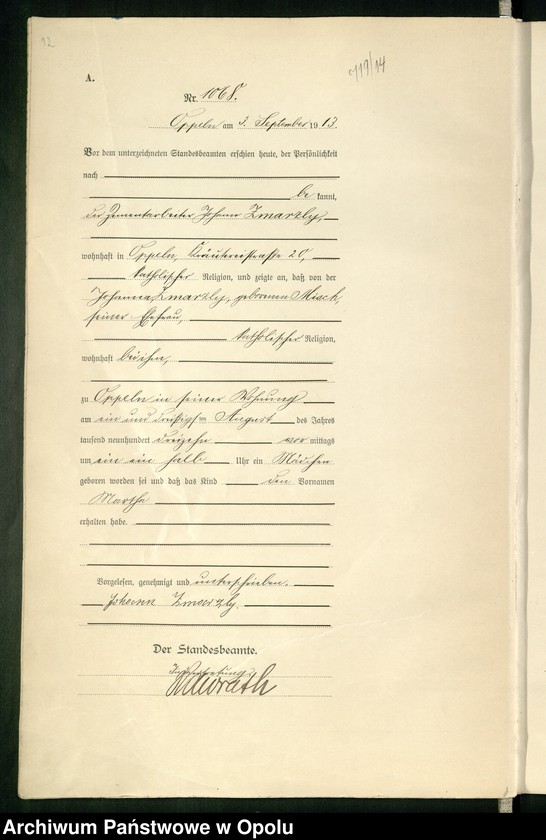 12
719/14
A.
Nr. 1068.
Oppeln am 3. September 1913.
Vor dem unterzeichneten Standesbeamten erschien heute, der Persönlichkeit
nach
be kannt,
der Zementarbeiter Johann Zmarzly,
wohnhaft in Oppeln, Kräutereistraße 20,
katholischer Religion, und zeigte an, daß von der
Johanna Zmarzly, geborenen Misch,
seiner Ehefrau,
katholischer Religion,
wohnhaft bei ihm,
zu Oppeln in seiner Wohnung
am ein und dreißigsten August des Jahres
tausend neunhundert dreizehn vor mittags
um ein ein halb Uhr ein Mädchen
geboren worden sei und daß das Kind den Vornamen
Martha
erhalten habe.
Vorgelesen, genehmigt und unterschrieben.
Johann Zmarzly.
Der Standesbeamte.
In Vertretung:
Archiwum Państwowe w Opolu